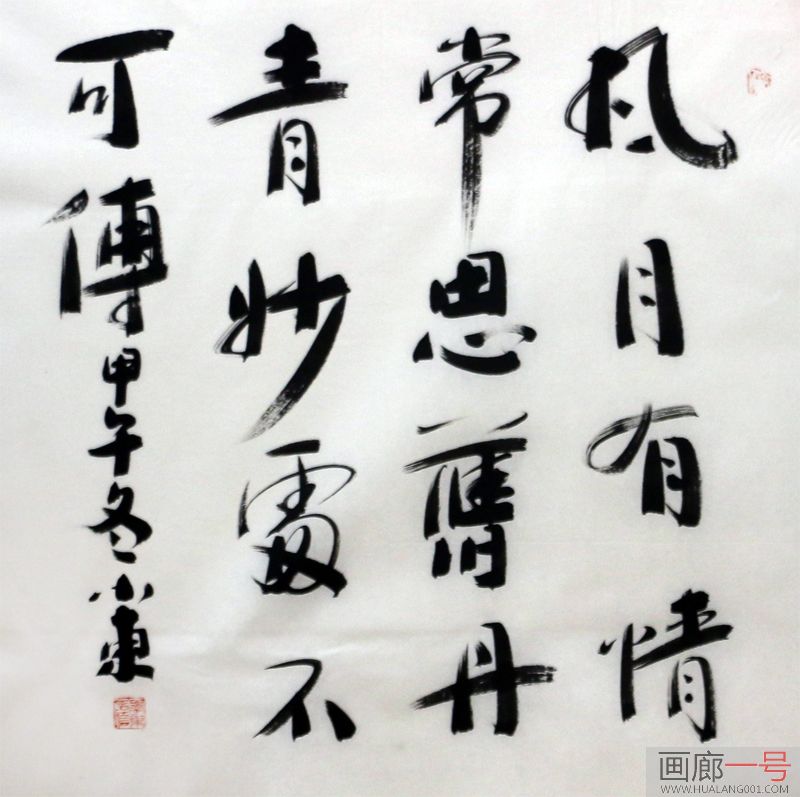 风月有情
常思舊丹
青妙處不
可傳甲午冬小東
画廊一号
WWW.HUALANG001.COM